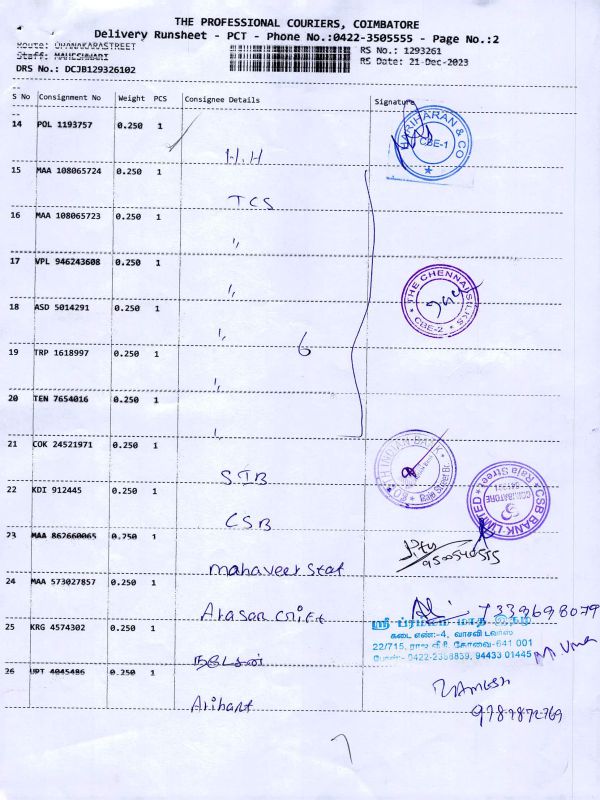 THE PROFESSIONAL COURIERS, COIMBATORE
Delivery Runsheet - PCT - Phone No.:0422-3505555 - Page No.:2
Route: DHANAKARASTREET
Staff: MAHESHWARI
DRS No.: DCJB129326102
RS No.: 1293261
RS Date: 21-Dec-2023
S No Consignment No Weight PCS Consignee Details Signature
14 POL 1193757 0.250 1
H.H
HARIHARAN & CO
CBE-1
15 MAA 108065724 0.250 1
TCS
16 MAA 108065723 0.250 1
"
17 VPL 946243608 0.250 1
"
THE CHENNAI SILKS
CBE-2
18 ASD 5014291 0.250 1
" 6
19 TRP 1618997 0.250 1
"
20 TEN 7654016 0.250 1
"
21 COK 24521971 0.250 1
S.I.B
22 KDI 912445 0.250 1
CSB
CSB BANK LIMITED
Raja Street
COIMBATORE
23 MAA 862660065 0.250 1
mahaveer staf
9500540555
24 MAA 573027857 0.250 1
Arasan crift
7339698079
25 KRG 4574302 0.250 1
நடேசன்
ஸ்ரீ
கடை எண்:-4, வாசவி டவர்ஸ்
22/715, ராஜ வீதி, கோவை-641 001
போன்:- 0422-2388839, 94433 01445
M. Uma
26 UPT 4045486 0.250 1
Arihant
RAMESH
9787872769
7